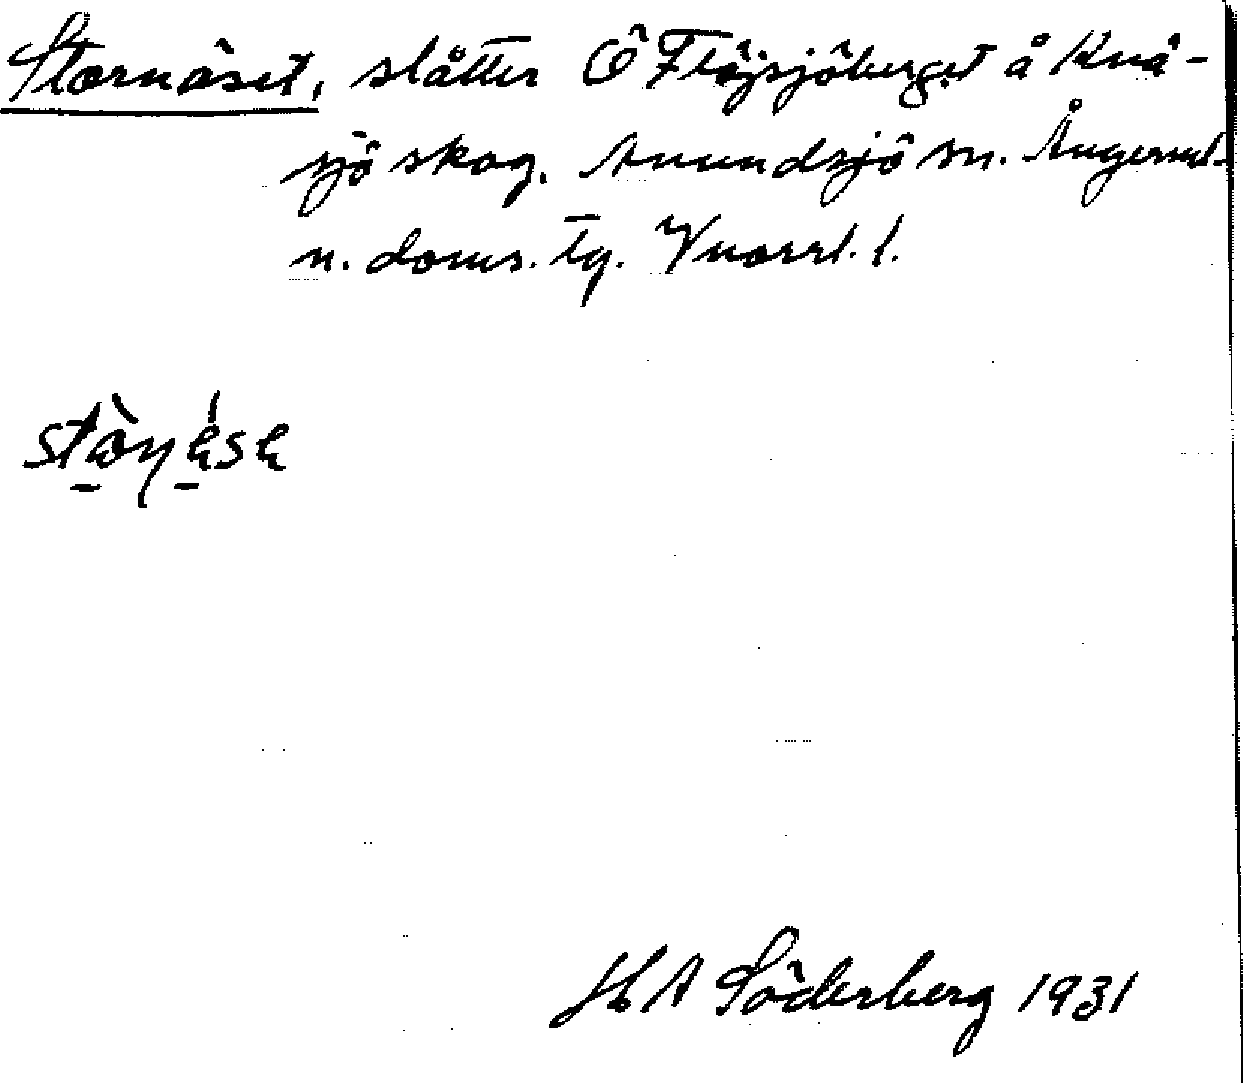 Stornäset, slåtter Ö Flöjsjöberget å Knä-
sjö skog. Anundsjö sn. Ångerml.
n. doms. tg. Vnorrl. l.
stò̱ṇé̱sɐ
H A Söderberg 1931